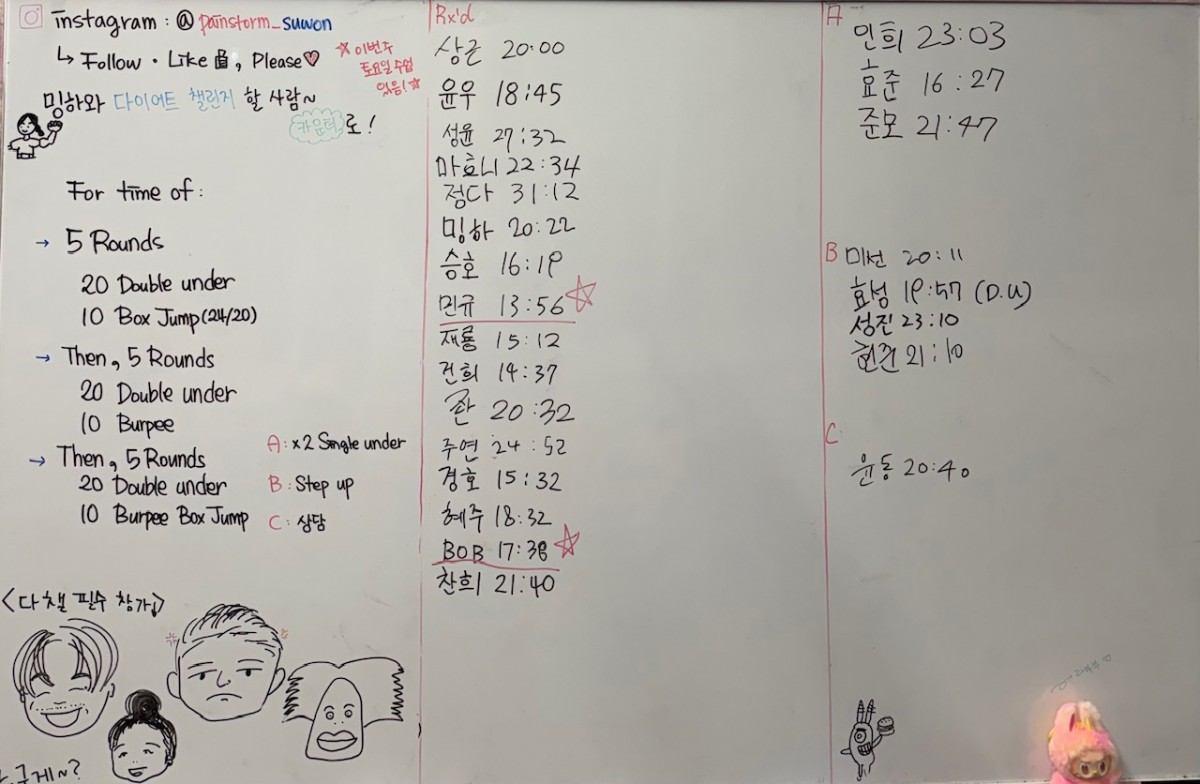 instagram : @ painstorm_suwon
↳ Follow · Like, Please♡
☆ 이번주
토요일 수업
있음! ☆
밍하와 다이어트 챌린지 할 사람~
카운터로!
For time of :
→ 5 Rounds
20 Double under
10 Box Jump (24/20)
→ Then, 5 Rounds
20 Double under
10 Burpee
→ Then, 5 Rounds
20 Double under
10 Burpee Box Jump
A : x2 Single under
B : Step up
C : 상담
<다챌 필수 참가↓>
Rx'd
상근 20:00
윤우 18:45
성윤 27:32
마효니 22:34
정다 31:12
밍하 20:22
승호 16:19
민규 13:56 ☆
재룡 15:12
건희 14:37
20:32
주연 24:52
경호 15:32
혜주 18:32
BOB 17:38 ☆
찬희 21:40
A
인희 23:03
효준 16:27
준모 21:47
B 미선 20:11
효성 19:57 (D.U)
성진 23:10
21:10
C
윤동 20:40